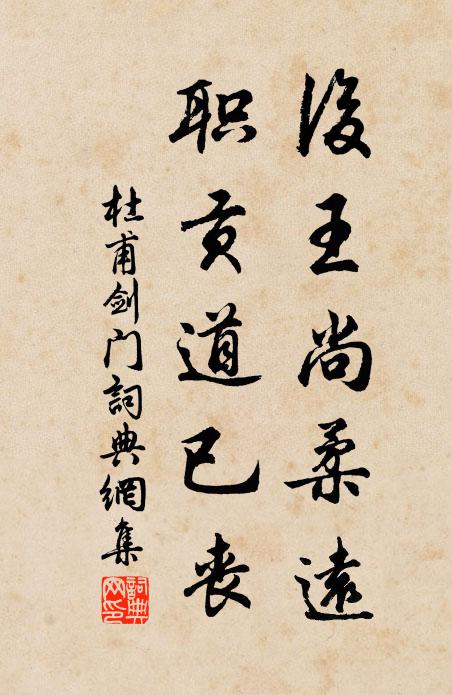 後王尚柔遠
职贡道已丧
杜甫剑门詞典網集
詞典网印